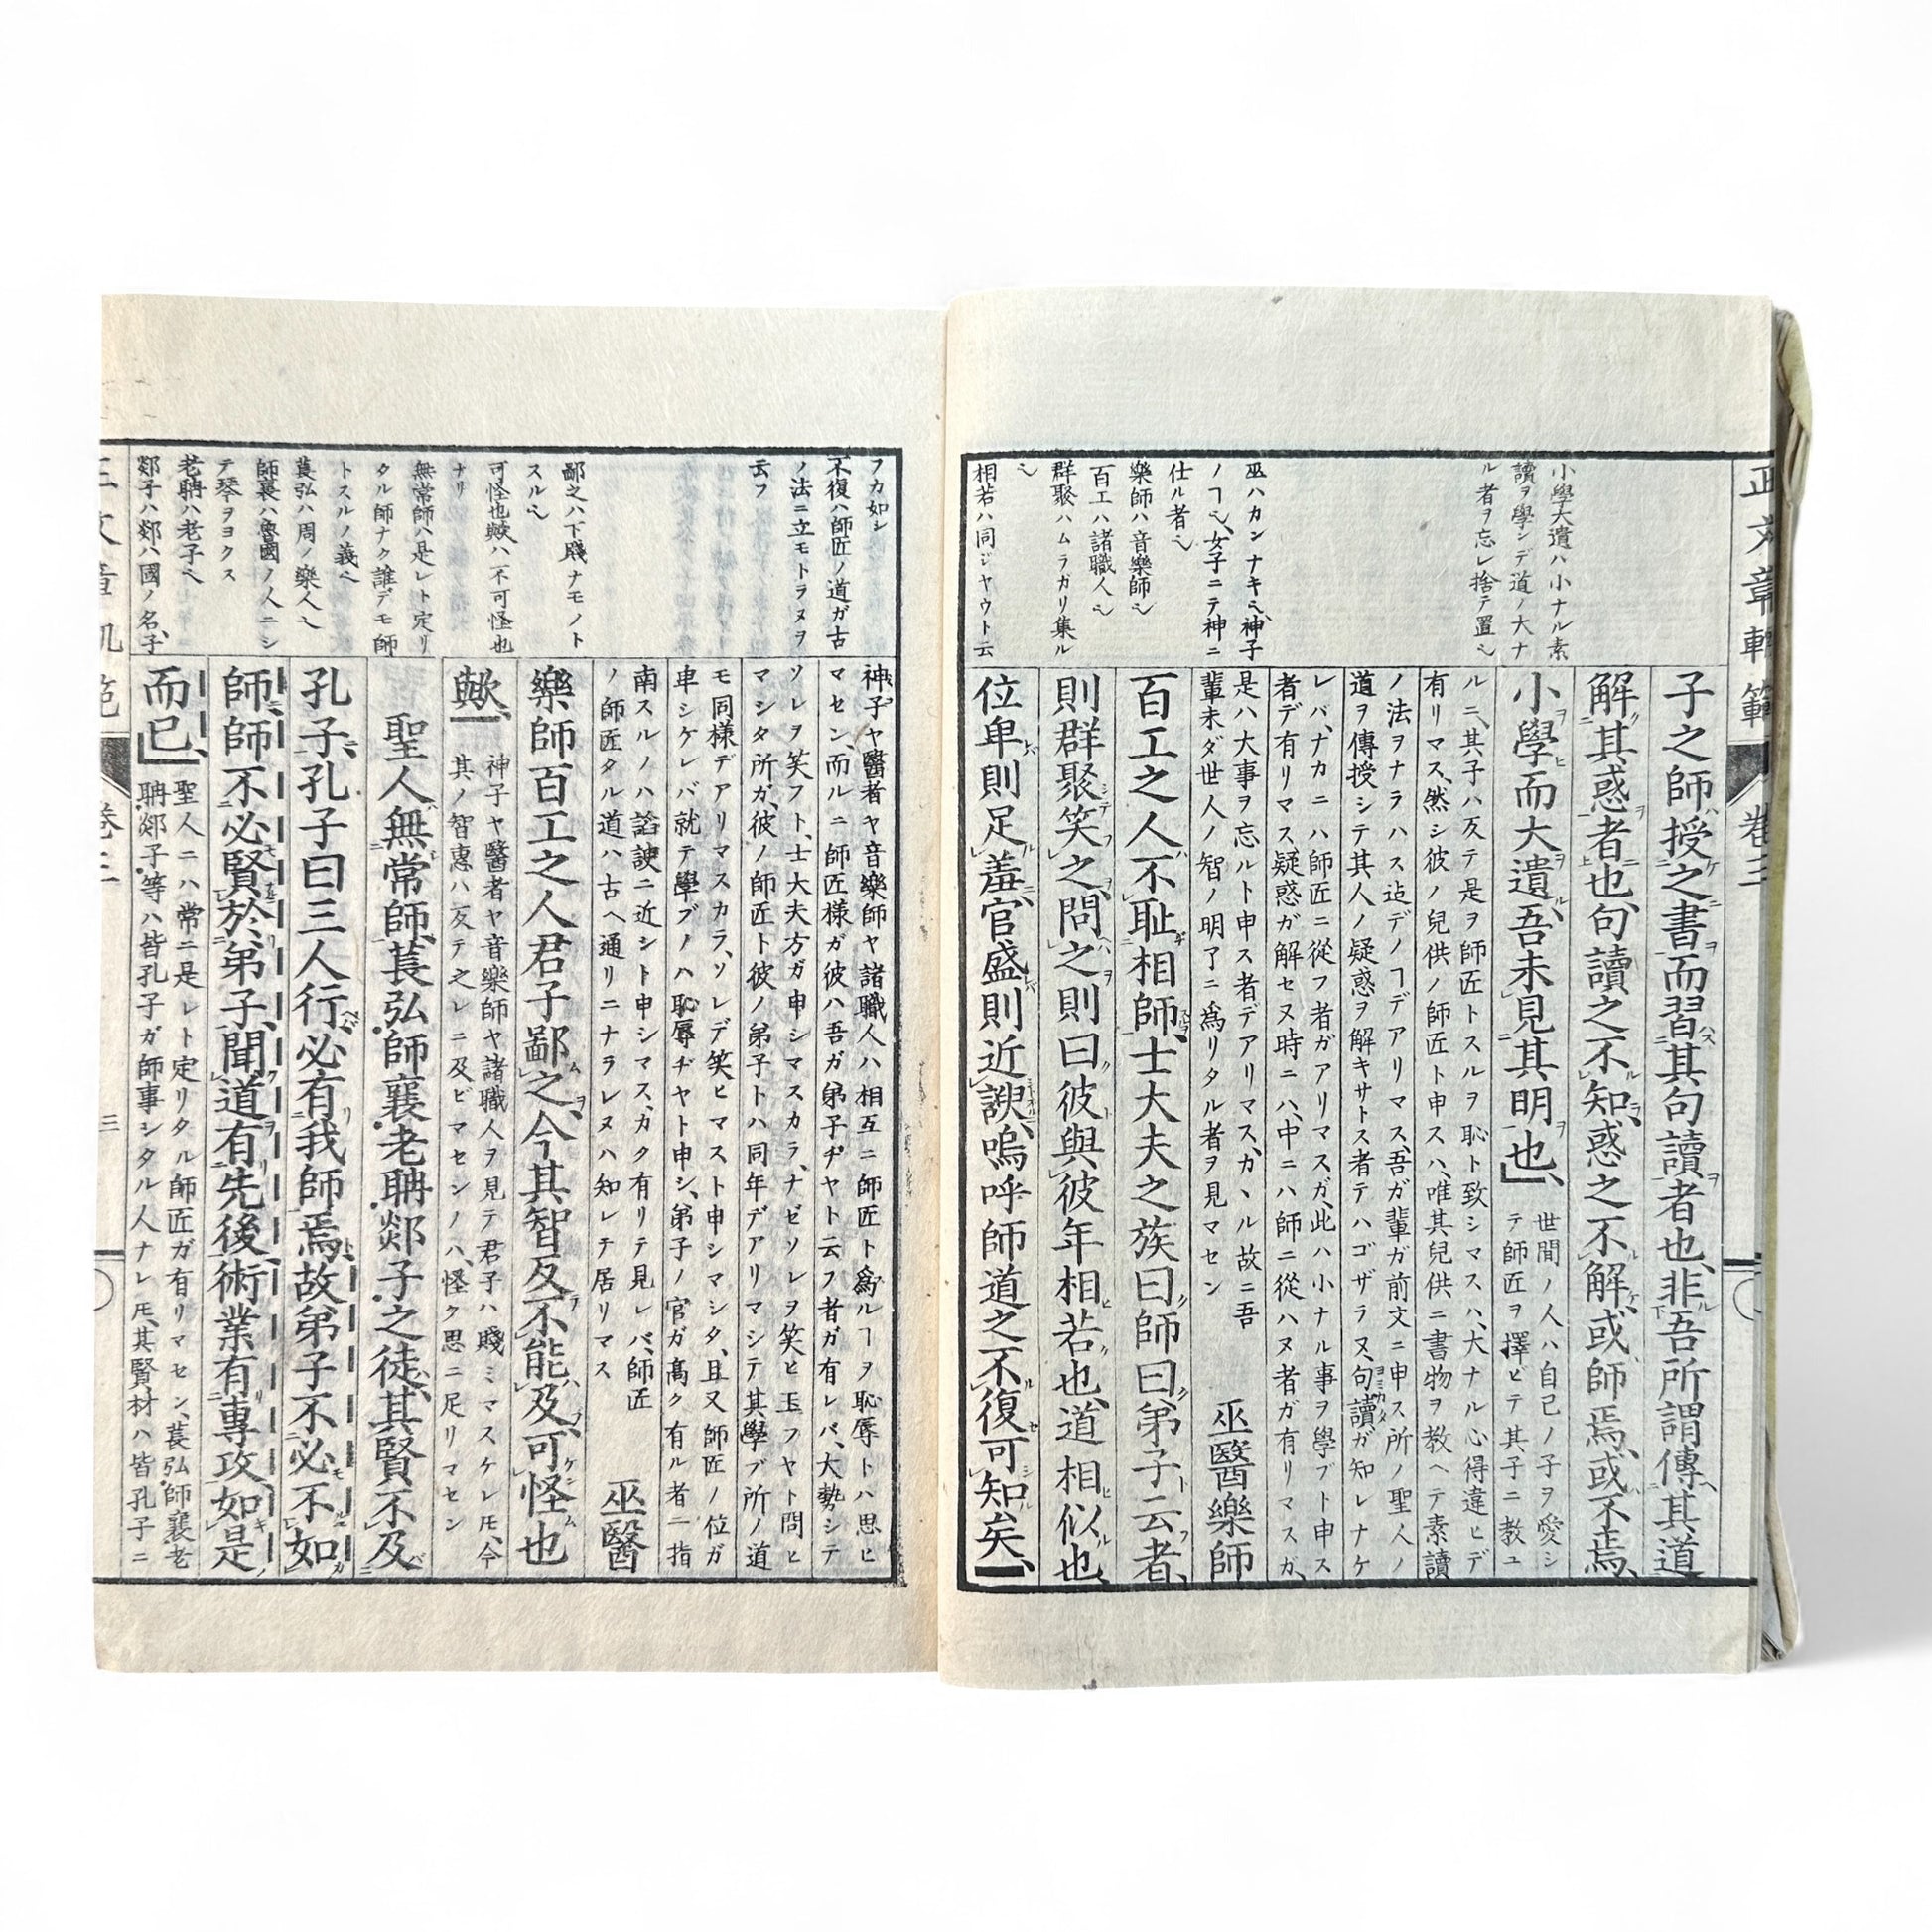 正文章軌範 卷三
小學大遺ハ小ナル素
讀ヲ學シデ道ノ大ナ
ル者ヲ忘レ捨テ置也
巫ハカンナキ也、神子
ノヿ也、女子ニテ神ニ
仕ル者也
樂師ハ音樂師也
百工ハ諸職人也
群聚ハムラガリ集ル
也
相若ハ同ジヤウト云
子之師授之書而習其句讀者也、非吾所謂傳其道
解其惑者也、句讀之不知、惑之不解、或師焉、或不焉、
小學而大遺、吾未見其明也、
世間ノ人ハ自己ノ子ヲ愛シ
テ師匠ヲ擇ビテ其子ニ教ユ
ルニ、其子ハ反テ是ヲ師匠トスルヲ恥ト致シマスハ、大ナル心得違ヒデ
有リマス、然シ彼ノ兒供ノ師匠ト申スハ、唯其兒供ニ書物ヲ教ヘテ素讀
ノ法ヲナラハス迠デノヿデアリマス、吾ガ輩ガ前文ニ申ス所ノ聖人ノ
道ヲ傳授シテ其人ノ疑惑ヲ解キサトス者テハゴザラヌ、句讀ガ知レナケ
レバ、ナカニハ師匠ニ從フ者ガアリマスガ、此ハ小ナル事ヲ學ブト申ス
者デ有リマス疑惑ガ解セヌ時ニハ、中ニハ師ニ從ハヌ者ガ有リマスガ、
是ハ大事ヲ忘ルト申ス者デアリマス、カヽル故ニ吾
輩未ダ世人ノ智ノ明了ニ爲リタル者ヲ見マセン
巫醫樂師
百工之人、不恥相師、士大夫之族、曰師曰弟子云者、
則群聚笑之、問之則曰、彼與彼年相若也、道相似也、
位卑則足羞、官盛則近諛、嗚呼師道之不復可知矣、
フカ如シ
不復ハ師匠ノ道ガ古
ノ法ニ立モトラヌヲ
云フ
鄙之ハ下賤ナモノト
スル也
可怪也歟ハ不可怪也
ナリ
無常師ハ是レト定リ
タル師ナク誰デモ師
トスルノ義也
萇弘ハ周ノ樂人也
師襄ハ魯國ノ人ニシ
テ琴ヲヨクス
老聃ハ老子也
郯子ハ郯ハ國ノ名、子
神子ヤ醫者ヤ音樂師ヤ諸職人ハ相互ニ師匠ト爲ルヿヲ恥辱トハ思ヒ
マセン、而ルニ師匠樣ガ彼ハ吾ガ弟子ヂヤト云フ者ガ有レバ、大勢シテ
ソレヲ笑フト、士大夫方ガ申シマスカラ、ナゼソレヲ笑ヒ玉フヤト問ヒ
マシタ所ガ、彼ノ師匠ト彼ノ弟子トハ同年デアリマシテ其學ブ所ノ道
モ同樣デアリマスカラ、ソレデ笑ヒマスト申シマシタ、且又師匠ノ位ガ
卑シケレバ就テ學ブノハ恥辱ヂヤト申シ、弟子ノ官ガ高ク有ル者ニ指
南スルノハ諂諛ニ近シト申シマス、カク有リテ見レバ、師匠
ノ師匠タル道ハ古ヘ通リニナラレヌハ知レテ居リマス
巫醫
樂師百工之人、君子鄙之、今其智反不能及、可怪也
歟、
神子ヤ醫者ヤ音樂師ヤ諸職人ヲ見テ君子ハ賤ミマスケレ𪜈、今
其ノ智惠ハ反テ之レニ及ビマセンノハ、怪ク思ニ足リマセン
聖人無常師、萇弘師襄、老聃郯子之徒、其賢不及
孔子、孔子曰三人行必有我師焉、故弟子不必不如
師、師不必賢於弟子、聞道有先後、術業有專攻、如是
而已、
聖人ニハ常ニ是レト定リタル師匠ガ有リマセン、萇弘師襄老
聃郯子等ハ皆孔子ガ師事シタル人ナレ𪜈、其賢材ハ皆孔子ニ
卷三
三